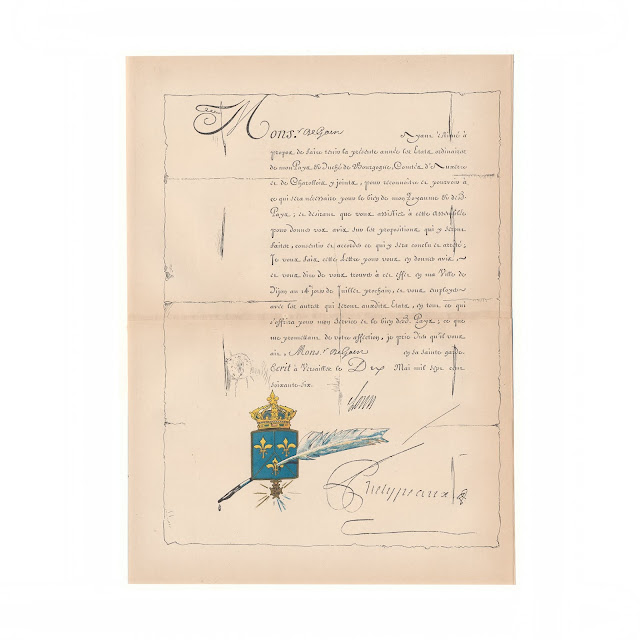 Mons.r de Gain ayant estimé à
propos de faire tenir la présente année les Etats ordinaires
de mon Pays & Duché de Bourgogne, Comtés d'Auxerre
et de Charollois y joints, pour reconnoître et pourvoir à
ce qui sera nécessaire pour le bien de mon Royaume & dud.
Pays; et désirant que vous assistiez à cette Assemblée
pour donner vos avis sur les propositions qui y seront
faites, consentir et accorder ce qui y sera conclu et arrêté;
Je vous fais cette Lettre pour vous en donner avis
et vous dire de vous trouver à cet effet en ma Ville de
Dijon au 16 jour de Juillet prochain, et vous employer
avec les autres qui seront auxdits Etats, en tout ce qui
s'offrira pour mon service et le bien dud. Pays; ce que
me promettant de votre affection, je prie Dieu qu'il vous
ait, Mons.r de Gain en sa sainte garde.
Ecrit à Versailles le Dix Mai mil sept cent
soixante-six.
Louis
Phelypeaux